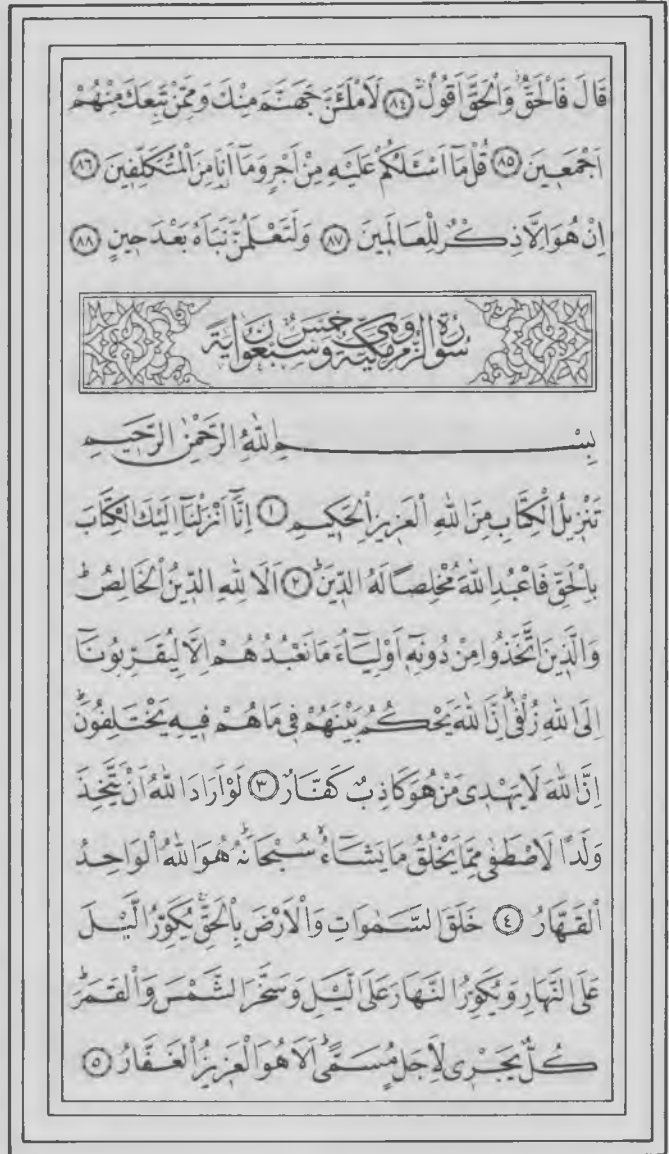 قَالَ فَالْحَقُّ وَالْحَقَّ اَقُولُ ﴿٨٤﴾ لَاَمْلَئَنَّ جَهَنَّمَ مِنْكَ وَمِمَّنْ تَبِعَكَ مِنْهُمْ
اَجْمَعِينَ ﴿٨٥﴾ قُلْ مَٓا اَسْـَٔلُكُمْ عَلَيْهِ مِنْ اَجْرٍ وَمَٓا اَنَا۬ مِنَ الْمُتَكَلِّفِينَ ﴿٨٦﴾
اِنْ هُوَ اِلَّا ذِكْرٌ لِلْعَالَمِينَ ﴿٨٧﴾ وَلَتَعْلَمُنَّ نَبَاَهُ بَعْدَ حِينٍ ﴿٨٨﴾
سُورَةُ الزُّمَرِ مَكِّيَّةٌ وَهِيَ خَمْسٌ وَسَبْعُونَ اٰيَةً
بِسْمِ اللّٰهِ الرَّحْمٰنِ الرَّحِيمِ
تَنْزِيلُ الْكِتَابِ مِنَ اللّٰهِ الْعَزِيزِ الْحَكِيمِ ﴿١﴾ اِنَّٓا اَنْزَلْنَٓا اِلَيْكَ الْكِتَابَ
بِالْحَقِّ فَاعْبُدِ اللّٰهَ مُخْلِصًا لَهُ الدِّينَۜ ﴿٢﴾ اَلَا لِلّٰهِ الدِّينُ الْخَالِصُۜ
وَالَّذِينَ اتَّخَذُوا مِنْ دُونِهِٓ اَوْلِيَٓاءَۢ مَا نَعْبُدُهُمْ اِلَّا لِيُقَرِّبُونَٓا
اِلَى اللّٰهِ زُلْفٰىۜ اِنَّ اللّٰهَ يَحْكُمُ بَيْنَهُمْ فِي مَا هُمْ فِيهِ يَخْتَلِفُونَۜ
اِنَّ اللّٰهَ لَا يَهْدِي مَنْ هُوَ كَاذِبٌ كَفَّارٌ ﴿٣﴾ لَوْ اَرَادَ اللّٰهُ اَنْ يَتَّخِذَ
وَلَدًا لَاصْطَفٰى مِمَّا يَخْلُقُ مَا يَشَٓاءُۙ سُبْحَانَهُۜ هُوَ اللّٰهُ الْوَاحِدُ
الْقَهَّارُ ﴿٤﴾ خَلَقَ السَّمٰوَاتِ وَالْاَرْضَ بِالْحَقِّۚ يُكَوِّرُ الَّيْلَ
عَلَى النَّهَارِ وَيُكَوِّرُ النَّهَارَ عَلَى الَّيْلِ وَسَخَّرَ الشَّمْسَ وَالْقَمَرَۜ
كُلٌّ يَجْرِي لِاَجَلٍ مُسَمًّىۜ اَلَا هُوَ الْعَزِيزُ الْغَفَّارُ ﴿٥﴾